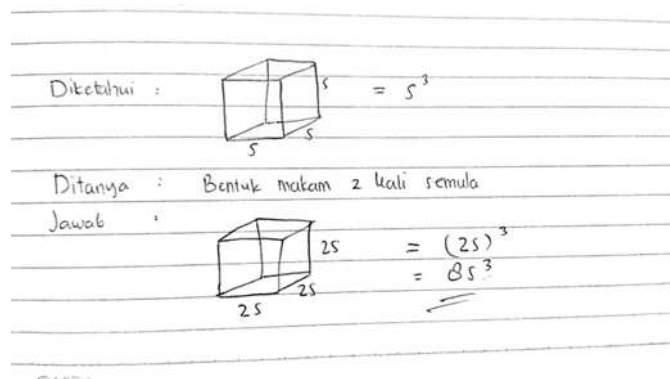 Diketahui : s s s = s³
Ditanya : Bentuk makam 2 kali semula
Jawab :
2s 2s 2s = (2s)³
= 8s³